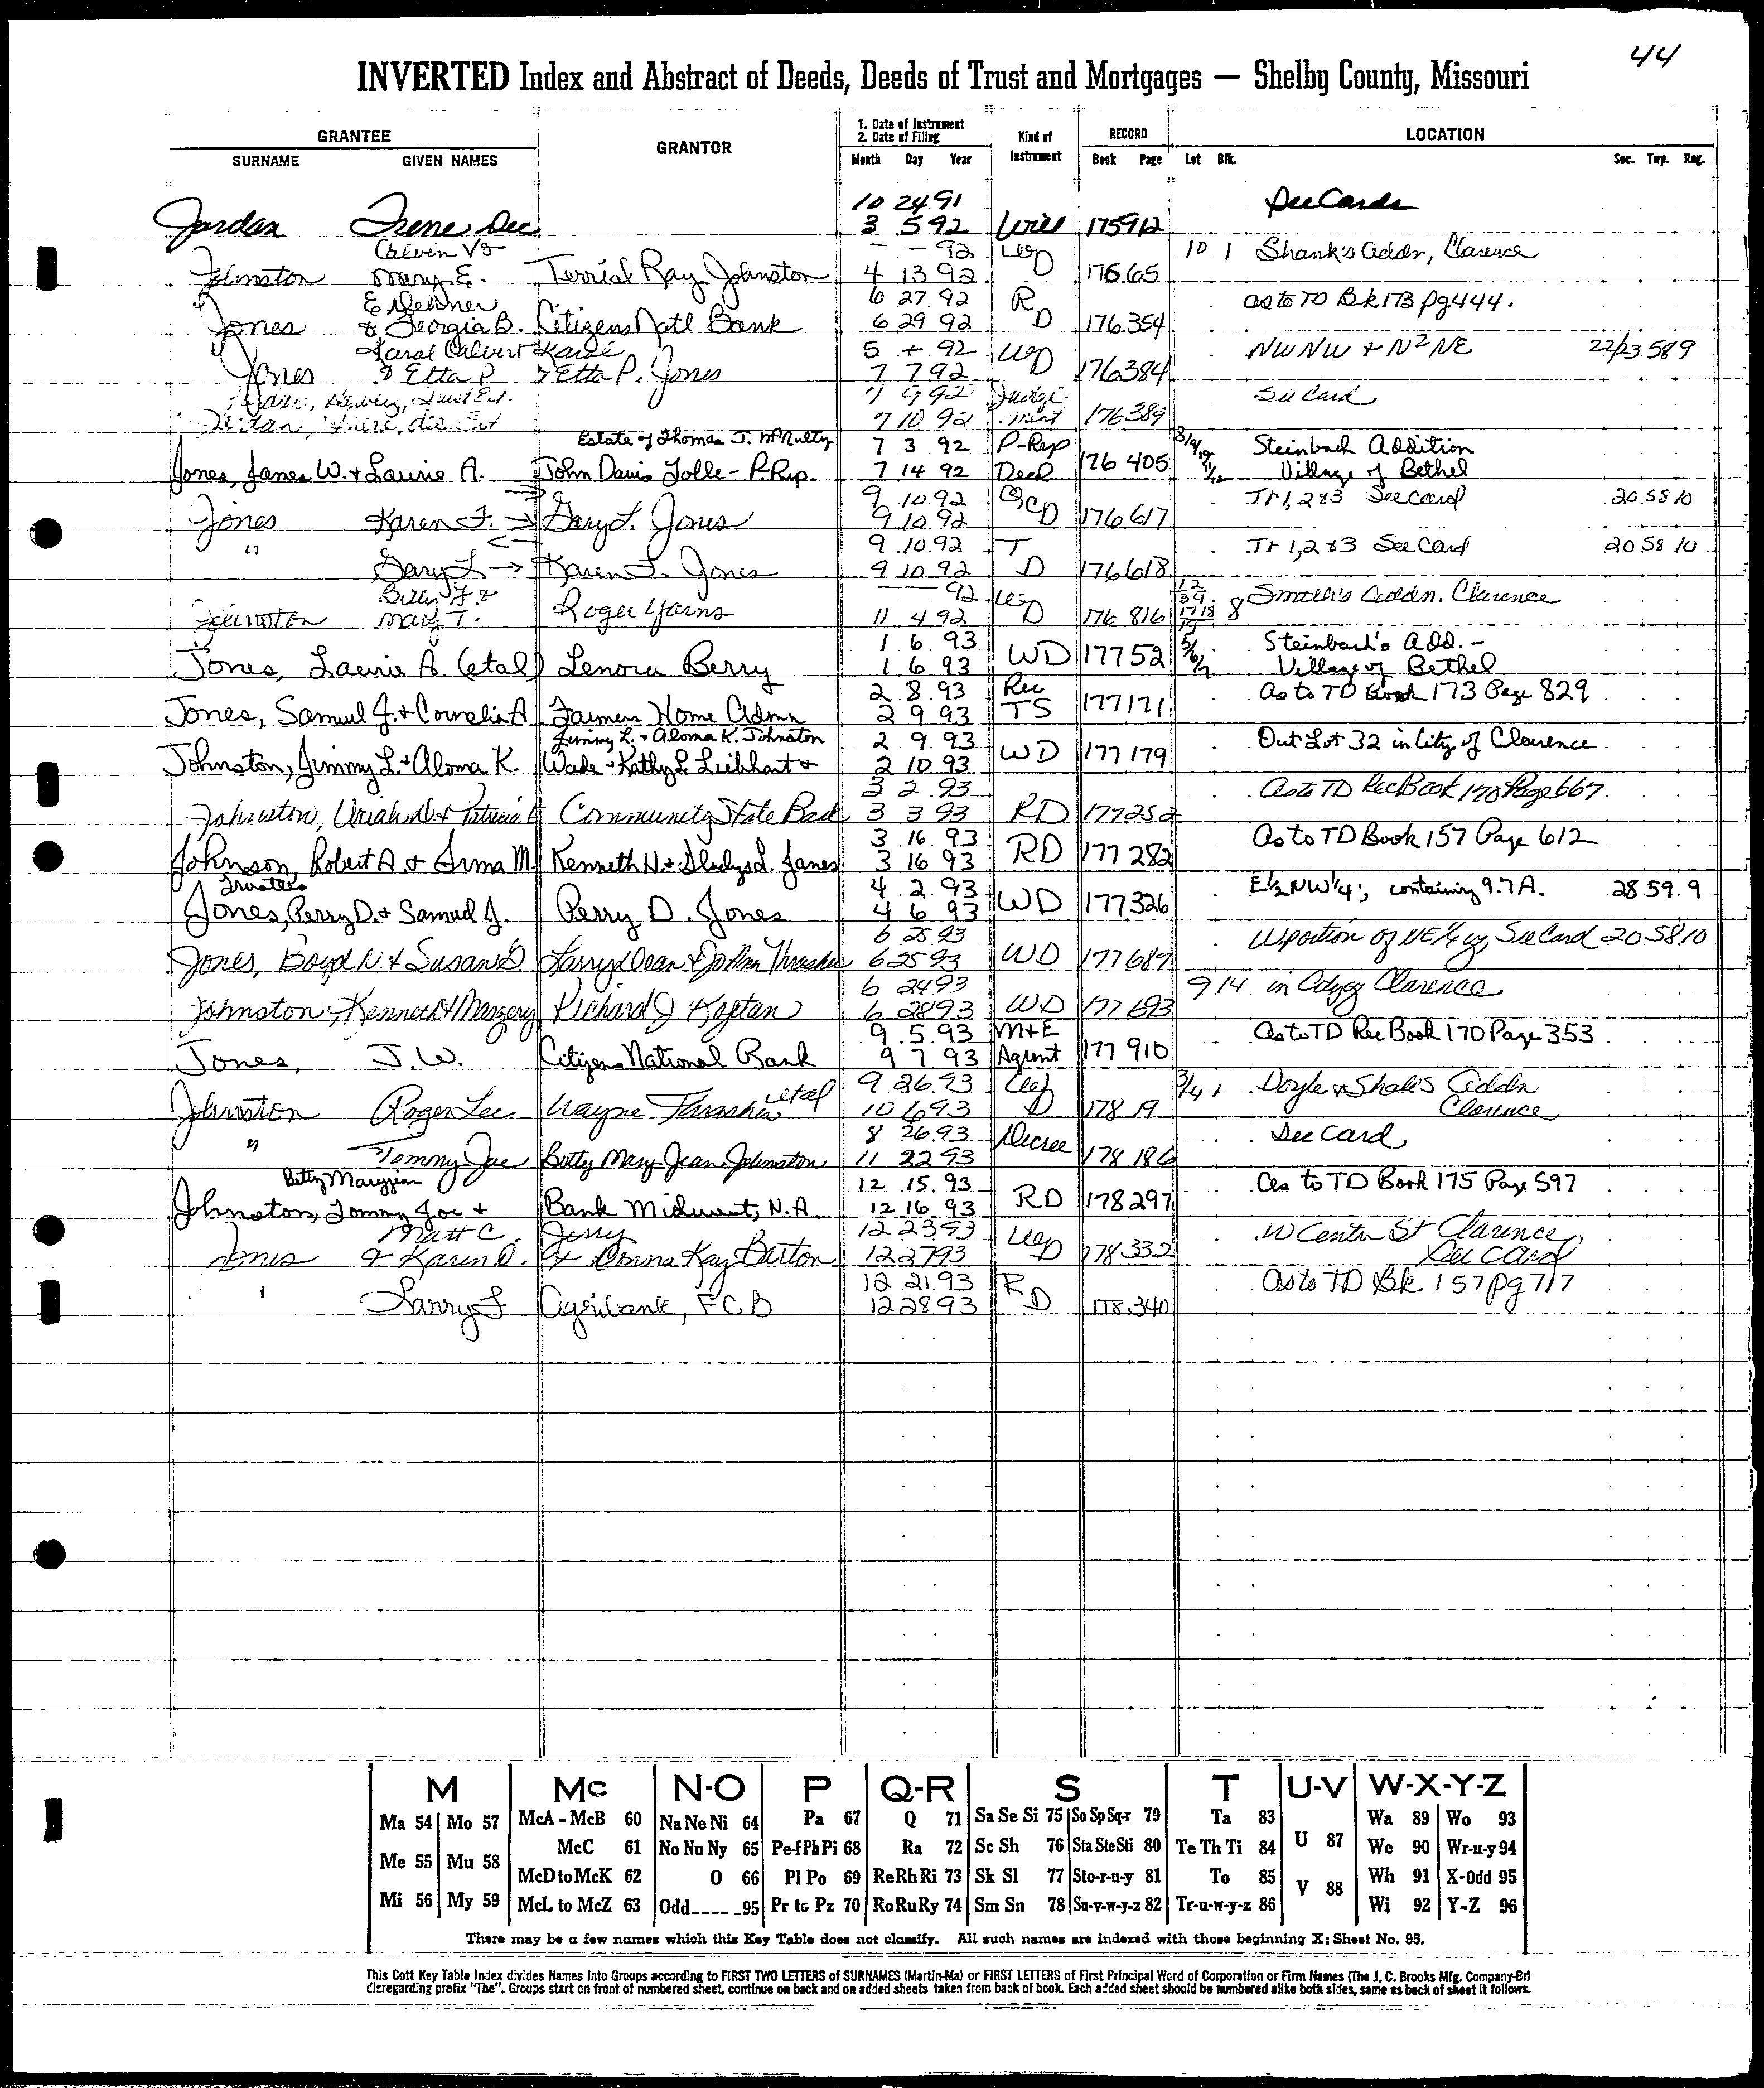 44
INVERTED Index and Abstract of Deeds, Deeds of Trust and Mortgages — Shelby County, Missouri
GRANTEE
SURNAME GIVEN NAMES
GRANTOR
1. Date of Instrument
2. Date of Filing
Month Day Year
Kind of
Instrument
RECORD
Book Page
LOCATION
Lot Blk.
Sec. Twp. Rng.
10 24 91 See Cards
Jordan Irene Dec 3 5 92 Will 175 912
Calvin V & — — 92 10 1 Shank's Addn, Clarence
Johnston Mary E. Terrial Ray Johnston 4 13 92 WD 176 65
6 27 92 R as to TD Bk 173 pg 444.
Jones & Georgia B. Citizens Natl Bank 6 29 92 D 176 354
Karal Calvert Karal 5 + 92 WD NW NW + N2 NE 22/23 58 9
Jones & Etta P & Etta P. Jones 7 7 92 176 384
7 9 92 Judge- See Card
7 10 92 ment 176 389
Estate of Thomas J. McNulty 7 3 92 P-Rep Steinbach Addition
Jones, James W. + Laurie A. John Davis Tolle - P. Rep. 7 14 92 Deed 176 405 Village of Bethel
9 10 92 QCD Tr 1, 2 & 3 See Card 20 58 10
Jones Karen F. → Gary L. Jones 9 10 92 176 617
" 9 10 92 T Tr 1, 2 & 3 See Card 20 58 10
Gary L → Karen F. Jones 9 10 92 D 176 618
Billy F. & — 92 WD 8 Smith's Addn. Clarence
Johnston Mary T. Roger Yarns 11 4 92 176 816
1 6 93 WD Steinbach's Add. -
Jones, Laurie A. (etal) Lenora Berry 1 6 93 177 52 5/6/7 Village of Bethel
2 8 93 Rec As to TD Book 173 Page 829
Jones, Samuel J. + Cornelia A Farmers Home Admn 2 9 93 TS 177 171
Jimmy L. + Aloma K. Johnston 2 9 93 WD Out Lot 32 in City of Clarence
Johnston, Jimmy L. + Aloma K. Wade + Kathy L Liebhart + 2 10 93 177 179
3 2 93 As to TD Rec Book 170 Page 667
Johnston, Community State Bank 3 3 93 RD 177 252
3 16 93 As to TD Book 157 Page 612
Johnson, Robert A. + Irma M. Kenneth N. + Gladys L. Janes 3 16 93 RD 177 282
Trustees 4 2 93 E½ NW¼; containing 9.7 A. 28 59 9
Jones, Perry D. + Samuel J. Perry D. Jones 4 6 93 WD 177 326
6 25 93 W portion of NE¼ See Card 20 58 10
Jones, Boyd N. + Susan D Larry Dean & JoAnn Thrasher 6 25 93 WD 177 687
6 24 93 9 14 in City of Clarence
Johnston, Kenneth & Margery Richard J Kaptan 6 28 93 WD 177 693
9 5 93 M+E As to TD Rec Book 170 Page 353
Jones, J. W. Citizens National Bank 9 7 93 Agent 177 910
9 26 93 WD 3/4 1 Doyle & Shale's Addn
Johnston Roger Lee Wayne Thrasher etal 10 6 93 178 19 Clarence
8 26 93 Decree See Card
" Tommy Joe Betty Mary Jean Johnston 11 22 93 178 186
Betty Maryjean 12 15 93 RD As to TD Book 175 Page 597
Johnston, Tommy Joe + Bank Midwest, N.A. 12 16 93 178 297
Matt C. Jerry 12 23 93 WD W Center St Clarence
Jones & Karen D. & Donna Kay Barton 12 27 93 178 332 See Card
12 21 93 R As to TD Bk. 157 pg 717
" Larry F Agribank, FCB 12 28 93 D 178 340
M Mc N-O P Q-R S T U-V W-X-Y-Z
Ma 54 Mo 57 McA - McB 60 Na Ne Ni 64 Pa 67 Q 71 Sa Se Si 75 So Sp Sq-r 79 Ta 83 U 87 Wa 89 Wo 93
McC 61 No Nu Ny 65 Pe-f Ph Pi 68 Ra 72 Sc Sh 76 Sta Ste Sti 80 Te Th Ti 84 We 90 Wr-u-y 94
Me 55 Mu 58 McD to McK 62 O 66 Pl Po 69 Re Rh Ri 73 Sk Sl 77 Sto-r-u-y 81 To 85 V 88 Wh 91 X-Odd 95
Mi 56 My 59 McL to McZ 63 Odd---- -95 Pr to Pz 70 Ro Ru Ry 74 Sm Sn 78 Su-v-w-y-z 82 Tr-u-w-y-z 86 Wi 92 Y-Z 96
There may be a few names which this Key Table does not classify. All such names are indexed with those beginning X; Sheet No. 95.
This Cott Key Table Index divides Names into Groups according to FIRST TWO LETTERS of SURNAMES (Martin-Ma) or FIRST LETTERS of First Principal Word of Corporation or Firm Names (The J. C. Brooks Mfg. Company-Br)
disregarding prefix "The". Groups start on front of numbered sheet, continue on back and on added sheets taken from back of book. Each added sheet should be numbered alike both sides, same as back of sheet it follows.